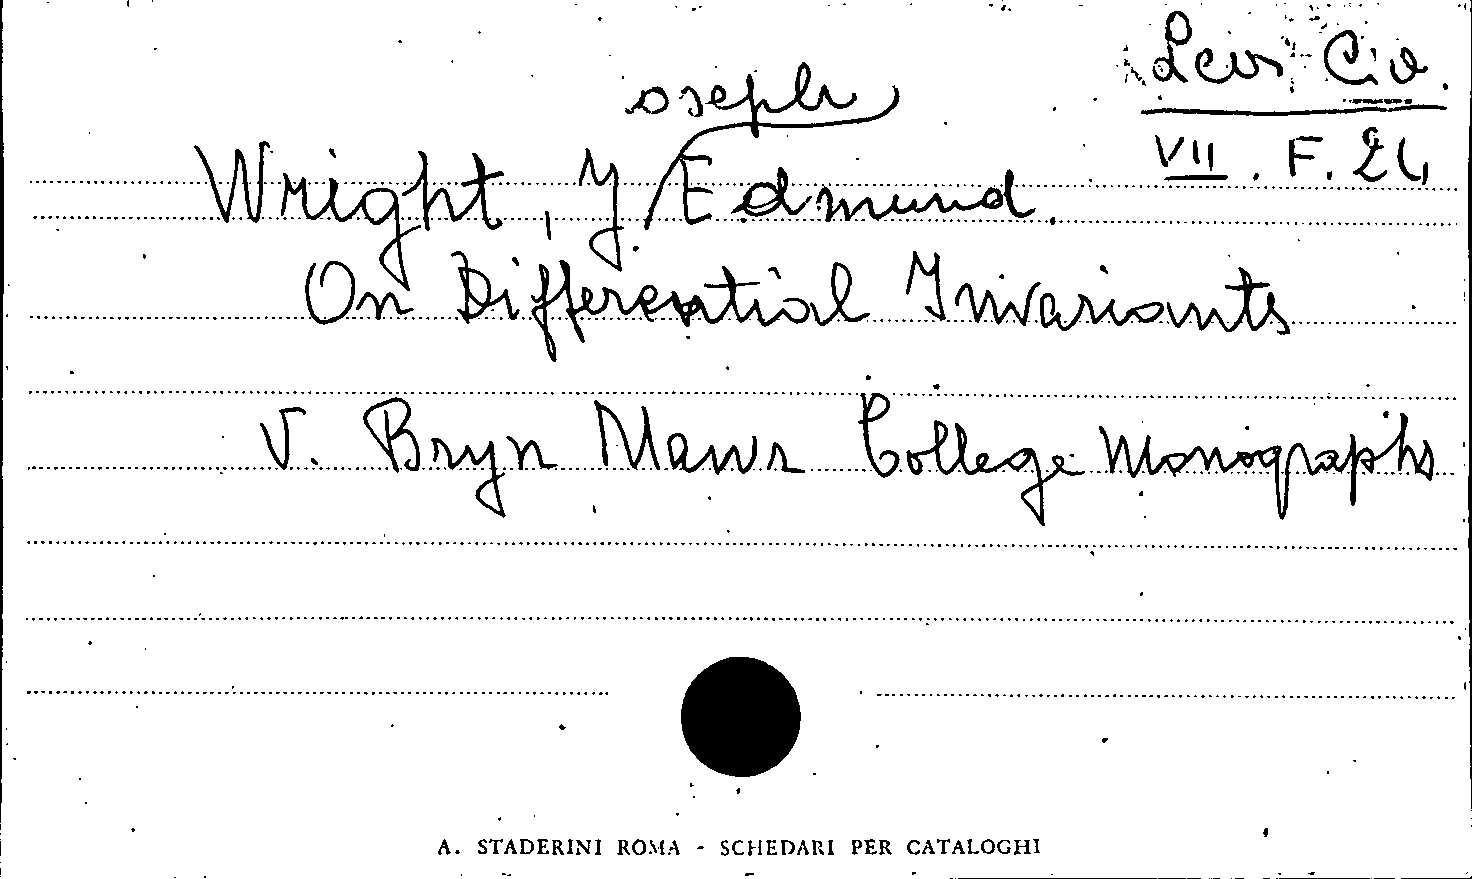 Levi Civ.
VII. F. 24
oseph
Wright, J. Edmund.
On Differential Invariants
V. Bryn Mawr College Monographs
A. STADERINI ROMA - SCHEDARI PER CATALOGHI